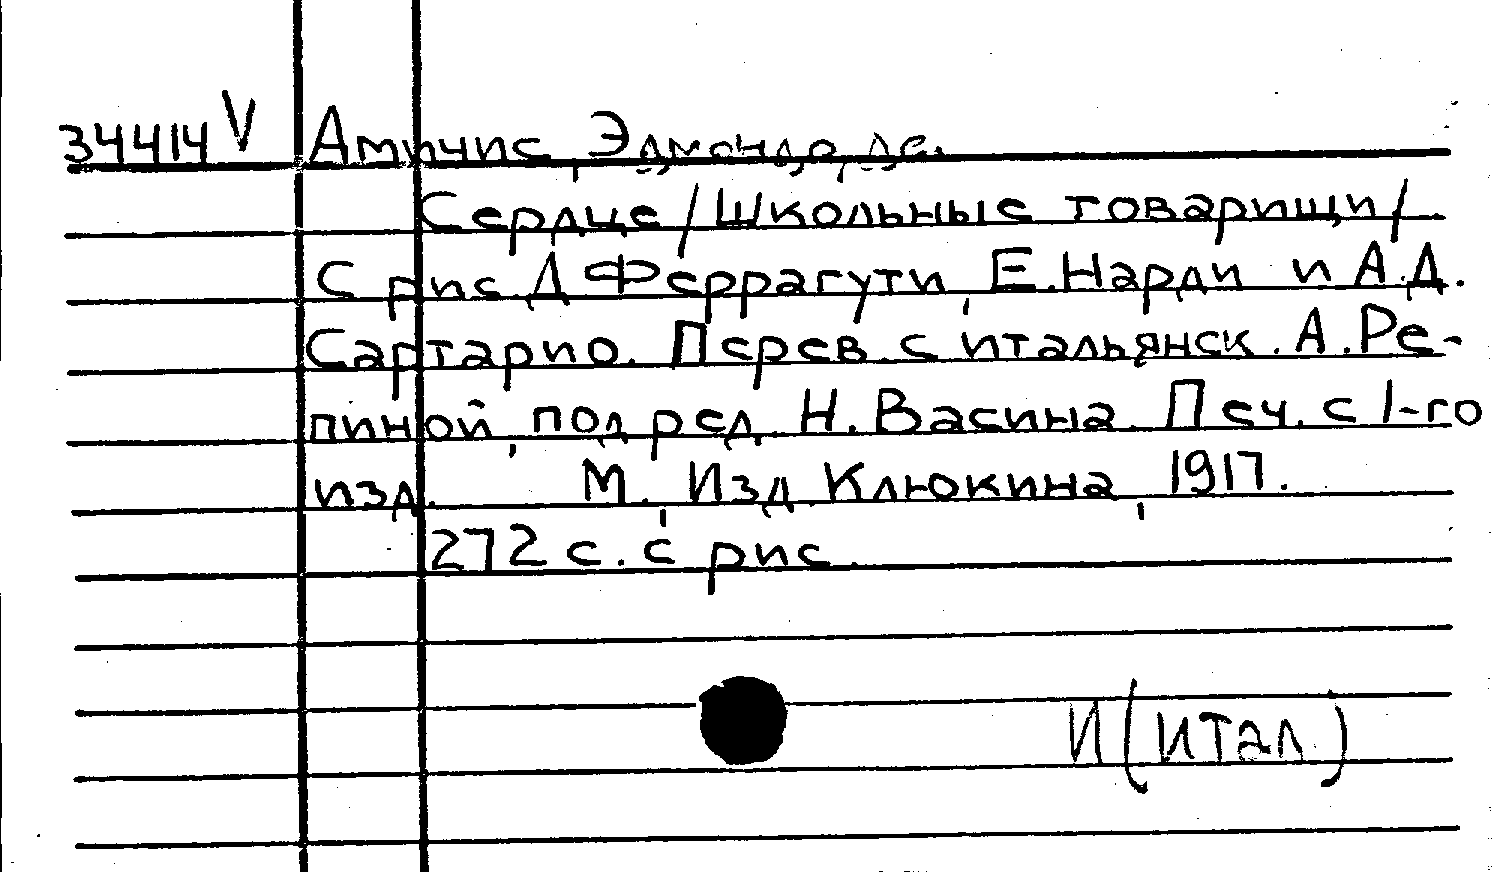 34414 V Амичис, Эдмондо, де.
Сердце /Школьные товарищи/
С рис Д Феррагути, Е. Нарди и А.Д.
Сартарио. Перев. с итальянск. А. Ре-
пиной, под ред. Н. Васина. Печ. с 1-го
изд. М., Изд Клюкина, 1917.
272 с. с рис.
И (итал)